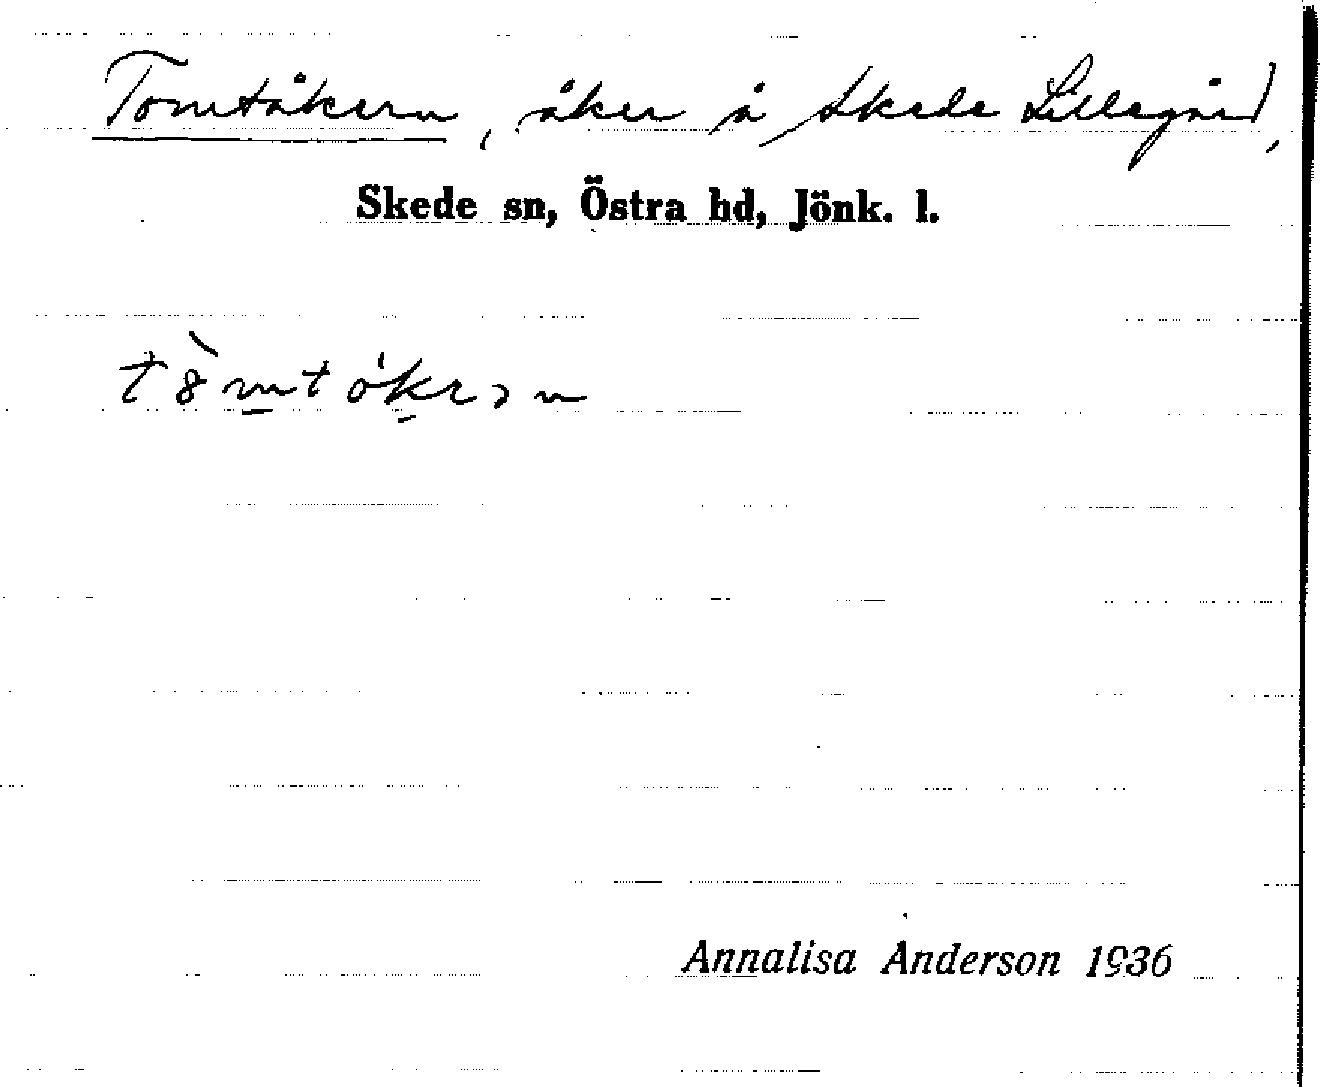 Tomtåkern, åker å Skede Lillegård,
Skede sn, Östra hd, Jönk. l.
Annalisa Anderson 1936